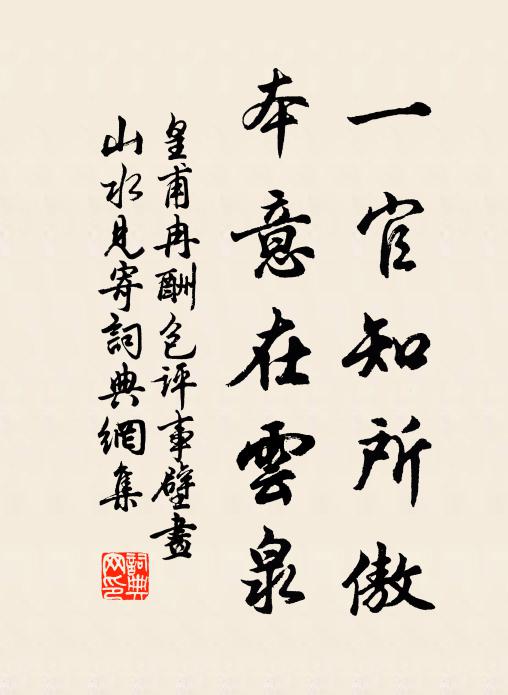 一官知所傲
本意在雲泉
皇甫冉酬包評事壁畫
山水見寄詞典網集
詞典网印